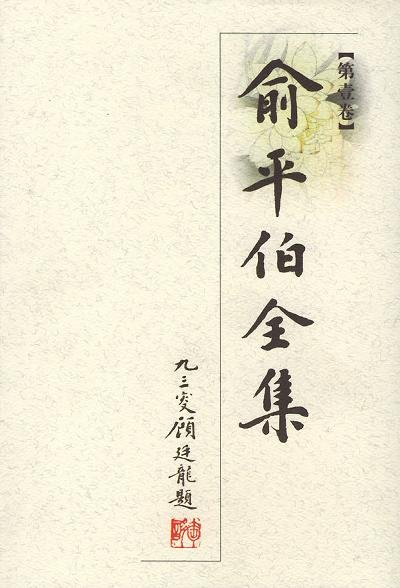 【第壹卷】
俞平伯全集
九三叜顧廷龍題